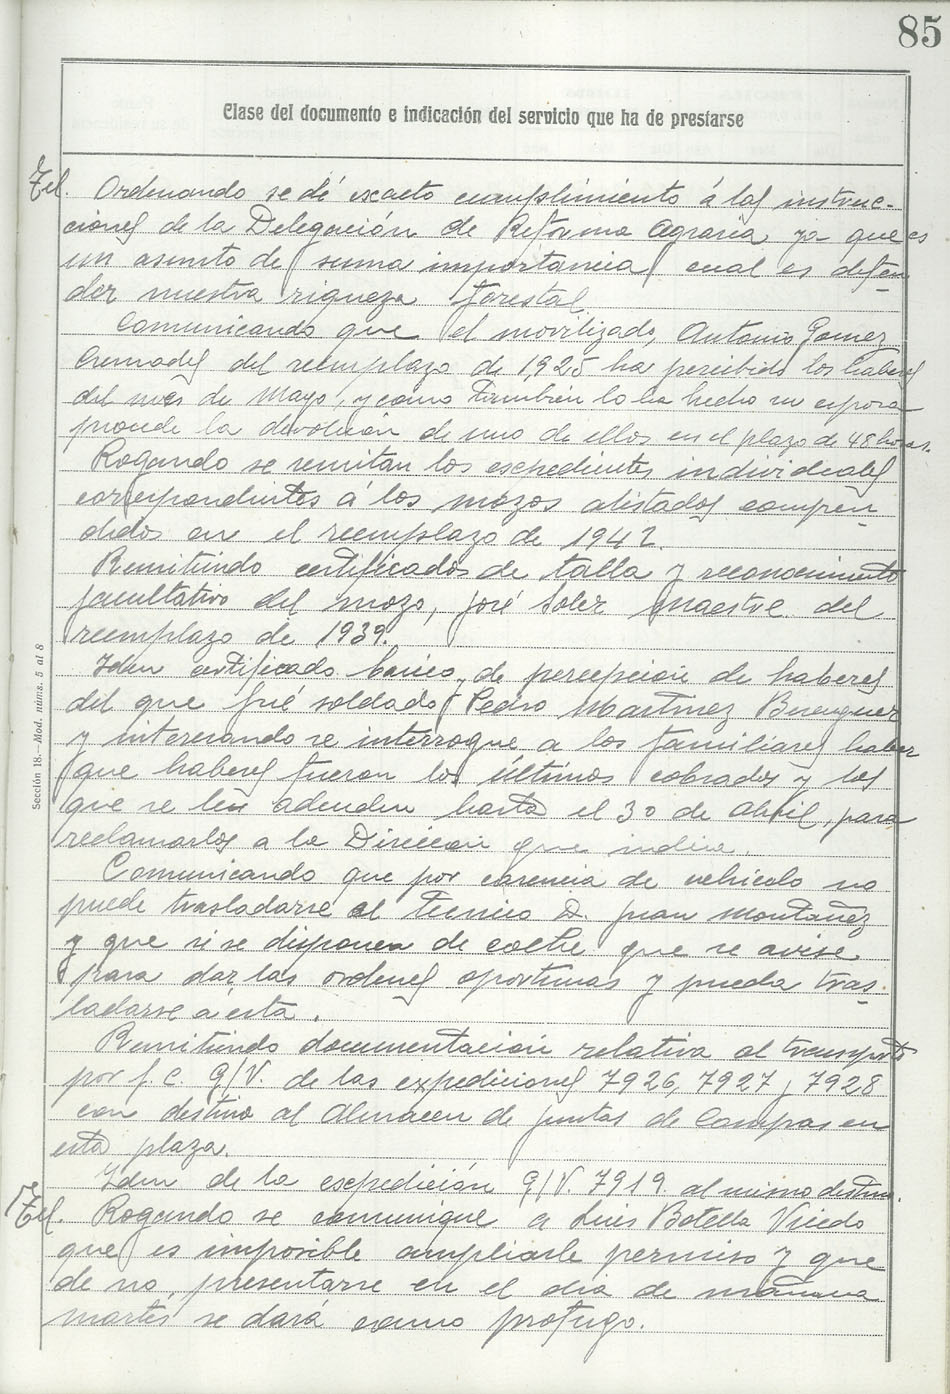 85
Clase del documento e indicación del servicio que ha de prestarse
Tel. Ordenando se dé exacto cumplimiento á las instruc-
ciones de la Delegación de Reforma Agraria ya que es
un asunto de suma importancia cual es defen-
der nuestra riqueza forestal.
Comunicando que el movilizado, Antonio Gomez
Cremades del reemplazo de 1,925 ha percibido los haberes
del mes de Mayo, y como también lo ha hecho su esposa
procede la devolución de uno de ellos en el plazo de 48 horas.
Rogando se remitan los expedientes individuales
correspondientes á los mozos alistados compren-
didos en el reemplazo de 1942.
Remitiendo certificados de talla y reconocimiento
facultativo del mozo, José Soler Maestre del
reemplazo de 1939.
Idem certificado básico, de percepción de haberes
del que fué soldado Pedro Martinez Berenguer
y interesando se interrogue a los familiares haber
que haberes fueron los últimos cobrados y los
que se les adeuden hasta el 30 de Abril, para
reclamarlos a la Dirección que indica.
Comunicando que por carencia de vehiculo no
puede trasladarse el Tecnico D. Juan Montañez
y que si se disponen de coche que se avise
para dar las ordenes oportunas y pueda tras-
ladarse a esta.
Remitiendo documentación relativa al transporte
por f.c. G/V. de las expediciones 7926, 7927 y 7928
con destino al Almacen de Juntas de Compras en
esta plaza.
Idem de la expedición G/V. 7919 al mismo destino.
Tel. Rogando se comunique a Luis Botella Vicedo
que es imposible ampliarle permiso y que
de no presentarse en el dia de mañana
martes se dará como profugo.
Sección 18.—Mod. núms. 5 al 8